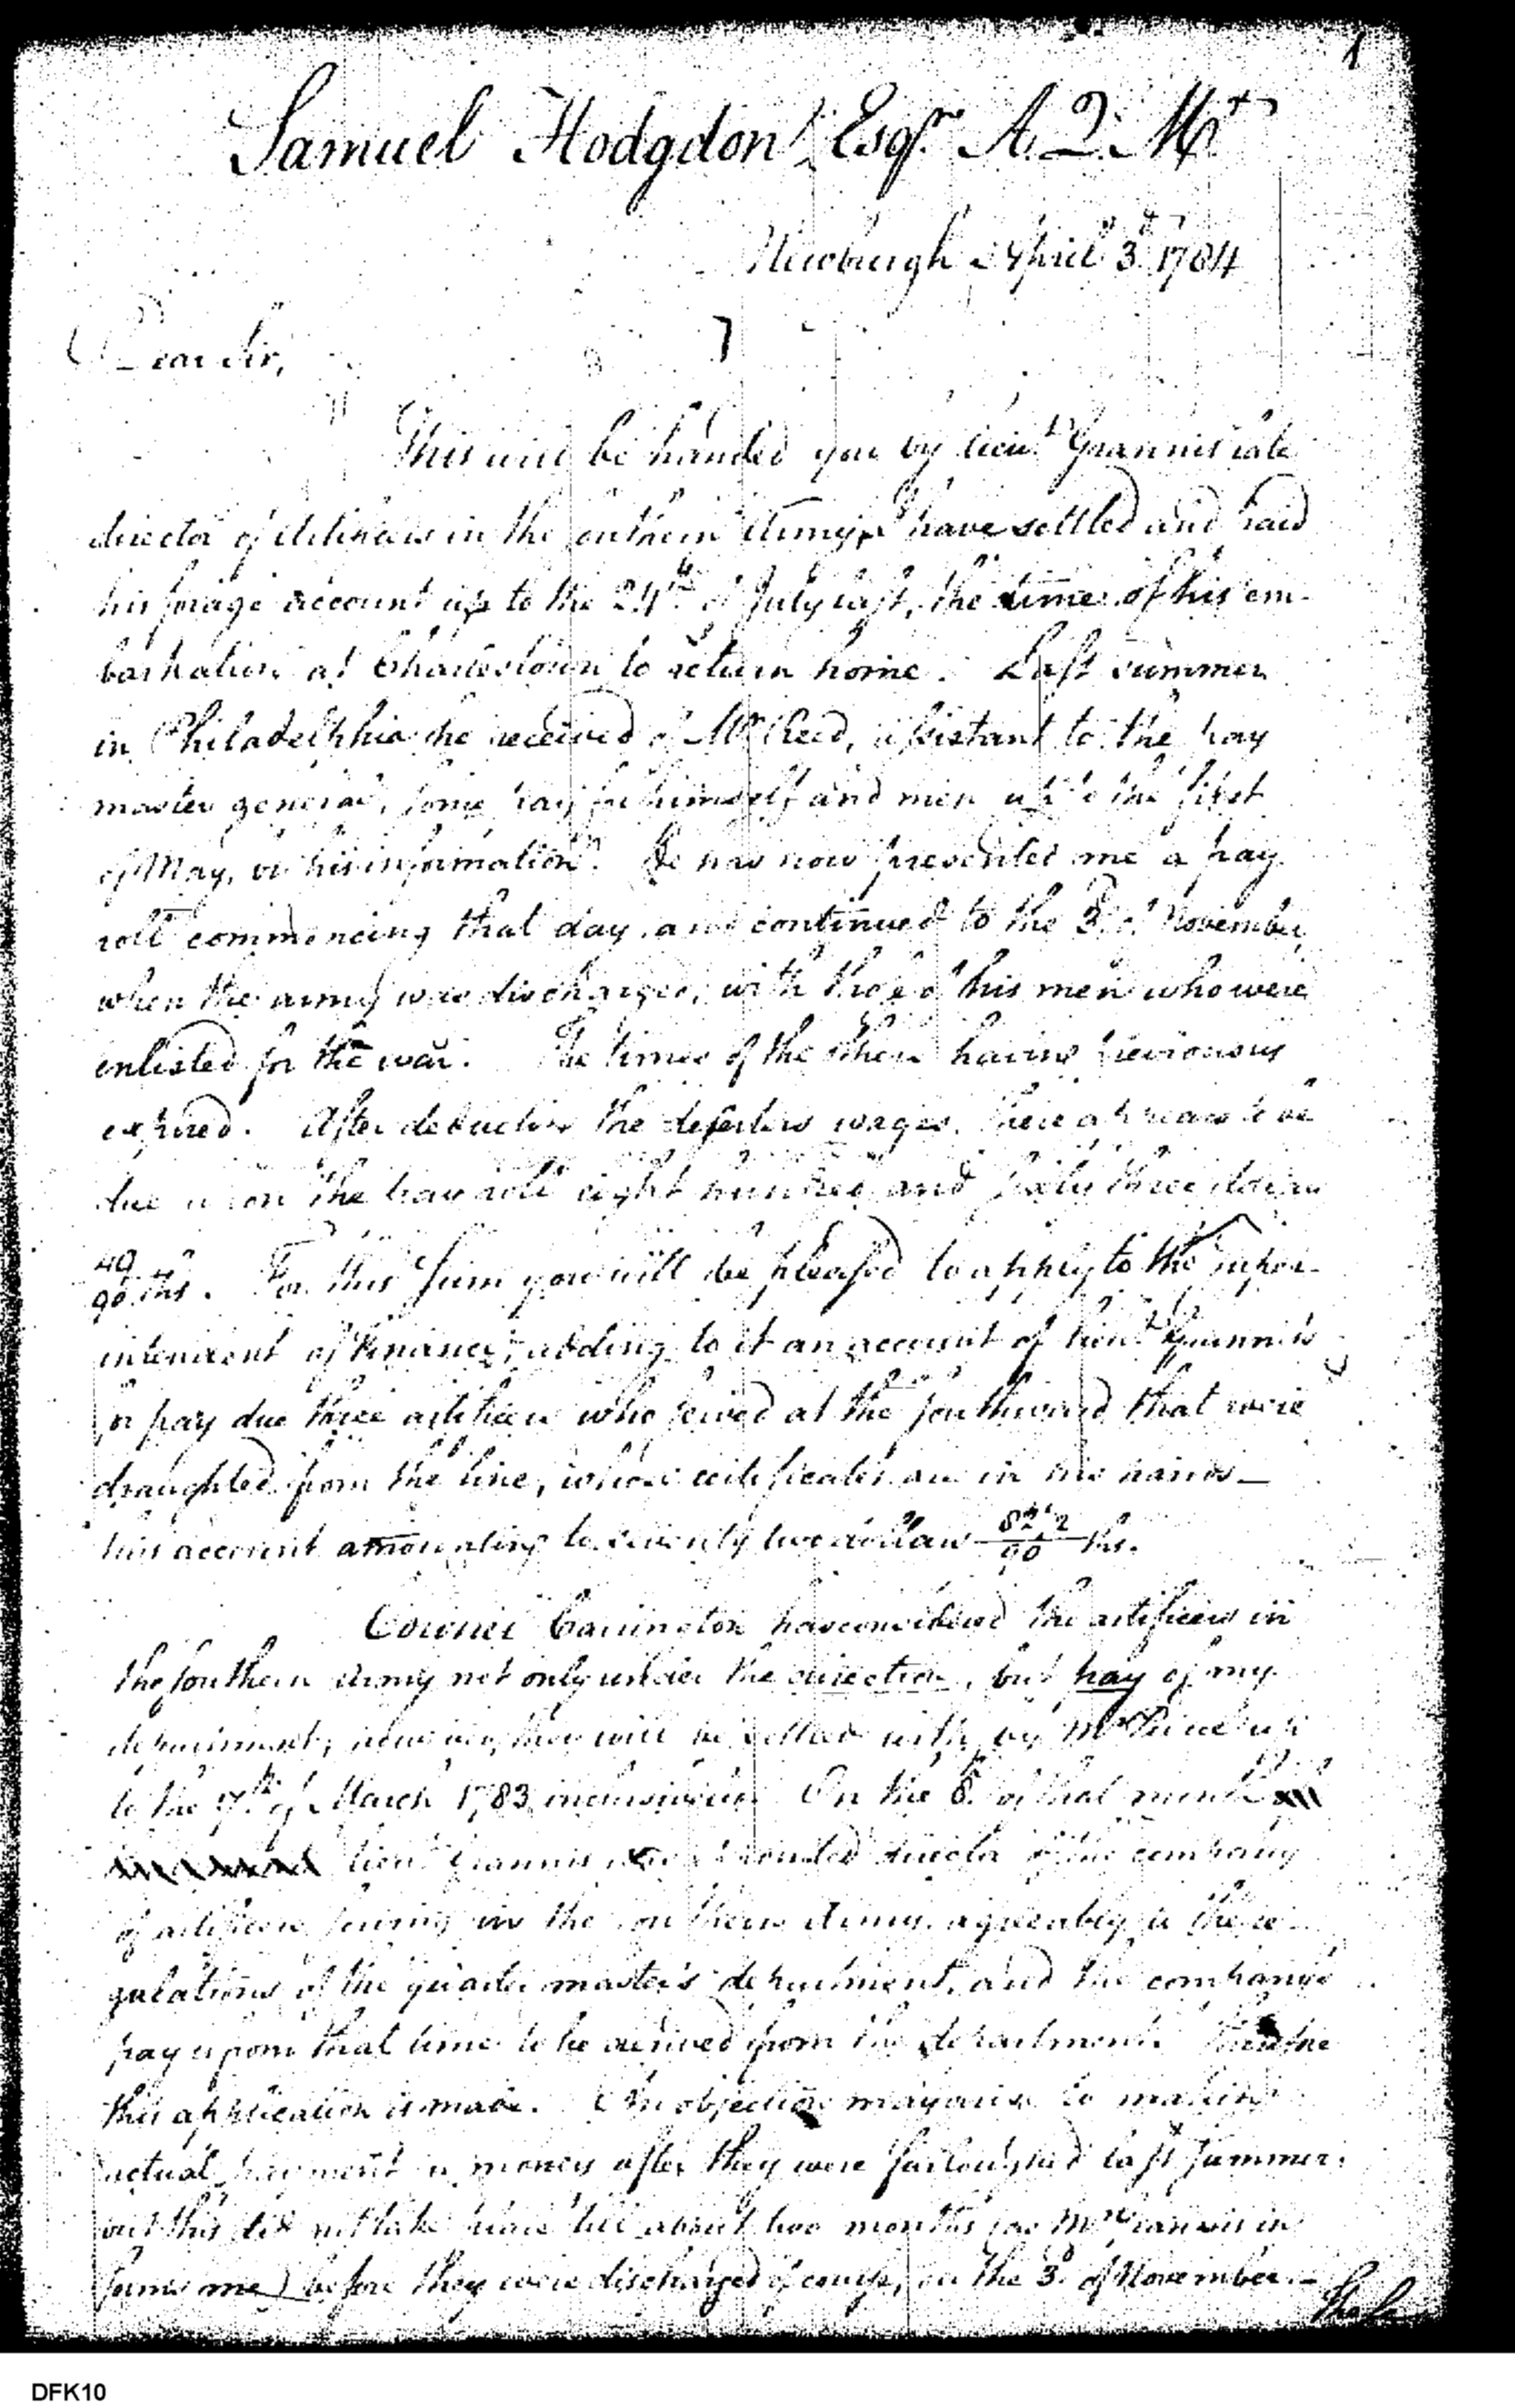 1
Samuel Hodgdon Esqr. A. Q. Mr
Newburgh April 3d. 1784
Dear Sir,
This will be handed you by lieut. Grannis late
director of artificers in the southern Army. I have settled and paid
his forage account up to the 24th. of July last, the time of his em-
barkation at Charlestown to return home. Last summer
in Philadelphia he received of Mr. Reed, assistant to the pay
master general, some pay for himself and men up to the first
of May, on his information. He has now presented me a pay
roll commencing that day and continued to the 3d. of November,
when the army was discharged, with those of his men who were
enlisted for the war. The times of the others having previously
expired. After deducting the deserters wages, there appears to be
due upon the pay roll eight hundred and sixty three dollars
49/90 ths. For this sum you will be pleased to apply to the super-
intendent of Finance; adding to it an account of lieut. Grannis
for pay due three artificers who served at the southward that were
draughted from the line, whose certificates are in his hands—
his account amounting to seventy two dollars /90 ths.
Colonel Carrington has considered the artificers in
the southern Army not only under the direction, but pay of my
department; however, they will be settled with by Mr. Pierce up
to the 7th. of March 1783 inclusively. On the 8th. of that month
lieut. Grannis was appointed director of the company
of artificers serving in the southern Army, agreeably to the re-
gulations of the quarter master's department, and the company's
pay upon that time to be derived from the department. Therefore
this application is made. An objection may arise to making
actual payment in money after they were furloughed last summer;
but this did not take place till about two months (as Mr. Grannis in
forms me) before they were discharged of course, on the 3d. of November.—
DFK10